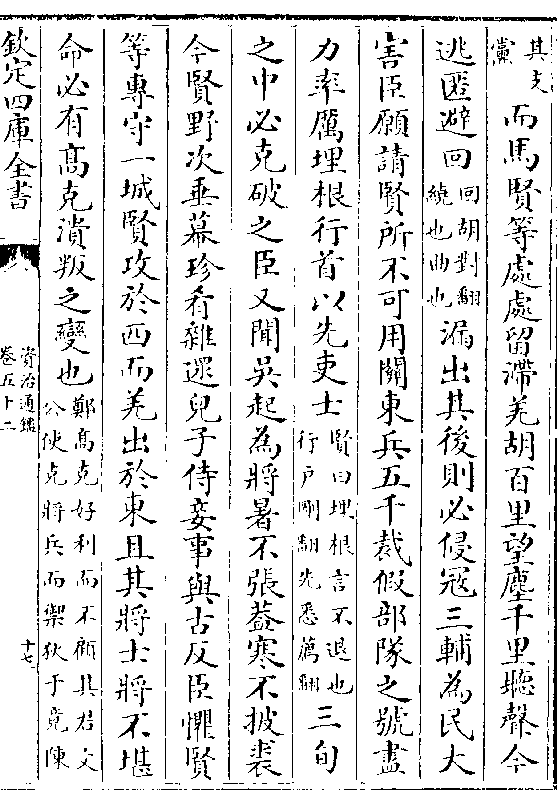 其支
黨
而馬賢等處處留滯羌胡百里望塵千里聽聲今
逃匿避回
回胡對翻
繞也曲也
漏出其後則必侵寇三輔為民大
害臣願請賢所不可用關東兵五千裁假部隊之號盡
力率厲埋根行首以先吏士
賢曰埋根言不退也
行戶剛翻先悉薦翻
三旬
之中必克破之臣又聞吳起為將暑不張葢寒不披裘
今賢野次垂幕珍肴雜遝兒子侍妾事與古反臣懼賢
等專守一城賢攻於西而羌出於東且其將士將不堪
命必有髙克潰叛之變也
鄭髙克好利而不顧其君文
公使克將兵而禦狄于竟陳
欽定四庫全書
資治通鑑
卷五十二
十七